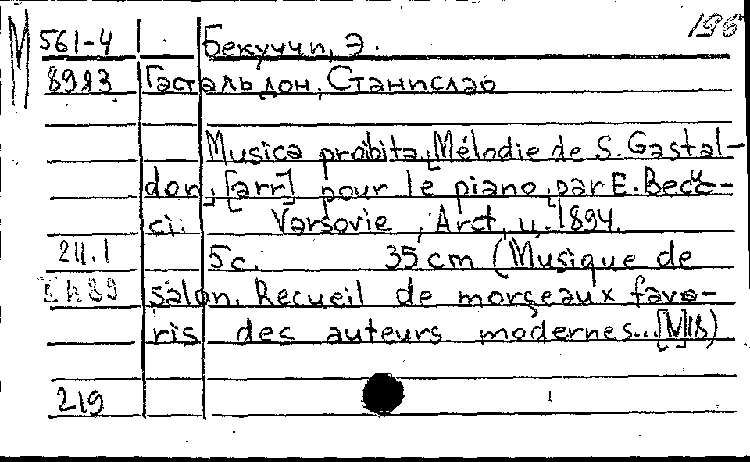 M 561-4 Бекуччи, Э. 196
8983 Гастальдон, Станислао
Musica proibita, Mélodie de S. Gastal-
don, [arr] pour le piano, par E. Becuc-
ci. Varsovie, Arct, ц. 1894.
211.1 5c. 35 cm (Musique de
salon. Recueil de morçeaux favo-
ris des auteurs modernes...
219